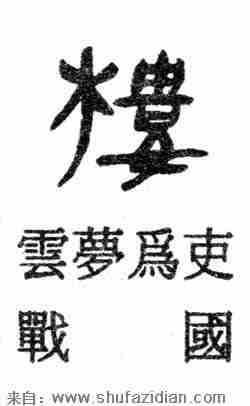 樓
雲夢爲吏
戰國
来自：www.shufazidian.com